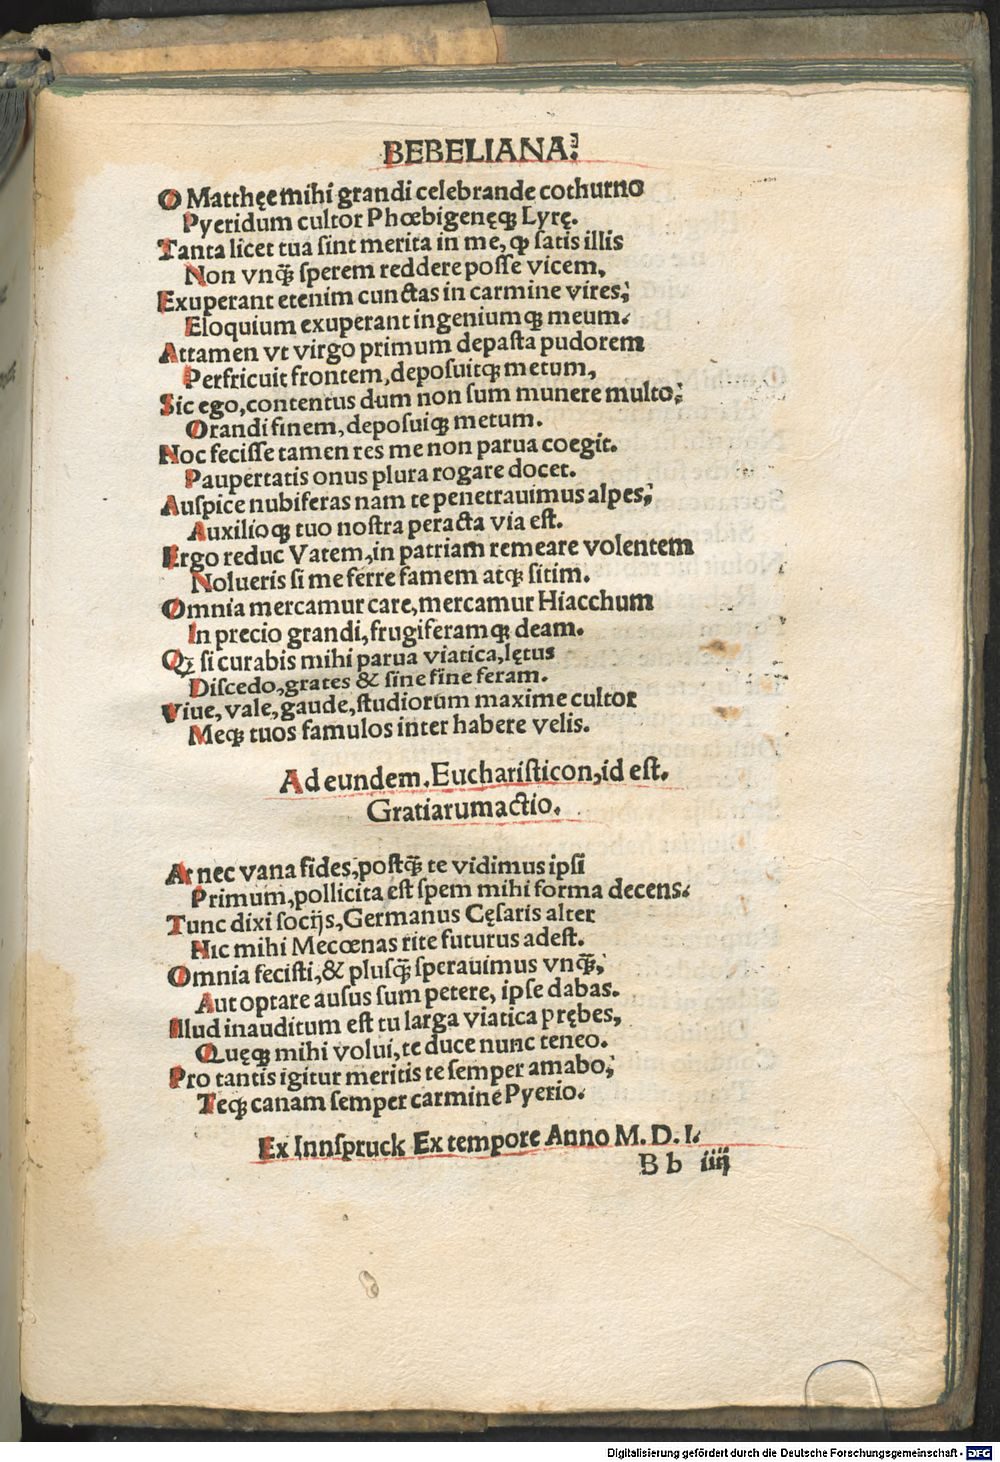 BEBELIANA.
O Matthęe mihi grandi celebrande cothurno
Pyeridum cultor Phœbigenęq; Lyrę.
Tanta licet tua sint merita in me, ꝙ satis illis
Non vnq̃ sperem reddere posse vicem,
Exuperant etenim cunctas in carmine vires;
Eloquium exuperant ingeniumq; meum.
Attamen vt virgo primum depasta pudorem
Perfricuit frontem, deposuitq; metum,
Sic ego, contentus dum non sum munere multo;
Orandi finem, deposuiq; metum.
Hoc fecisse tamen res me non parua coegit.
Paupertatis onus plura rogare docet.
Auspice nubiferas nam te penetrauimus alpes;
Auxilioq; tuo nostra peracta via est.
Ergo reduc Vatem, in patriam remeare volentem
Nolueris si me ferre famem atq; sitim.
Omnia mercamur care, mercamur Hiacchum
In precio grandi, frugiferamq; deam.
Qꝫ si curabis mihi parua viatica, lętus
Discedo, grates & sine fine feram.
Viue, vale, gaude, studiorum maxime cultor
Meq; tuos famulos inter habere velis.
Ad eundem. Eucharisticon, id est.
Gratiarumactio.
At nec vana fides, postq̃ te vidimus ipsi
Primum, pollicita est spem mihi forma decens.
Tunc dixi socijs, Germanus Cęsaris alter
Hic mihi Mecœnas rite futurus adest.
Omnia fecisti, & plusq̃ sperauimus vnq̃;
Aut optare ausus sum petere, ipse dabas.
Illud inauditum est tu larga viatica prębes,
Quęq; mihi volui, te duce nunc teneo.
Pro tantis igitur meritis te semper amabo;
Teq; canam semper carmine Pyerio.
Ex Innspruck Ex tempore Anno M. D. I.
B b iiij
Digitalisierung gefördert durch die Deutsche Forschungsgemeinschaft - DFG